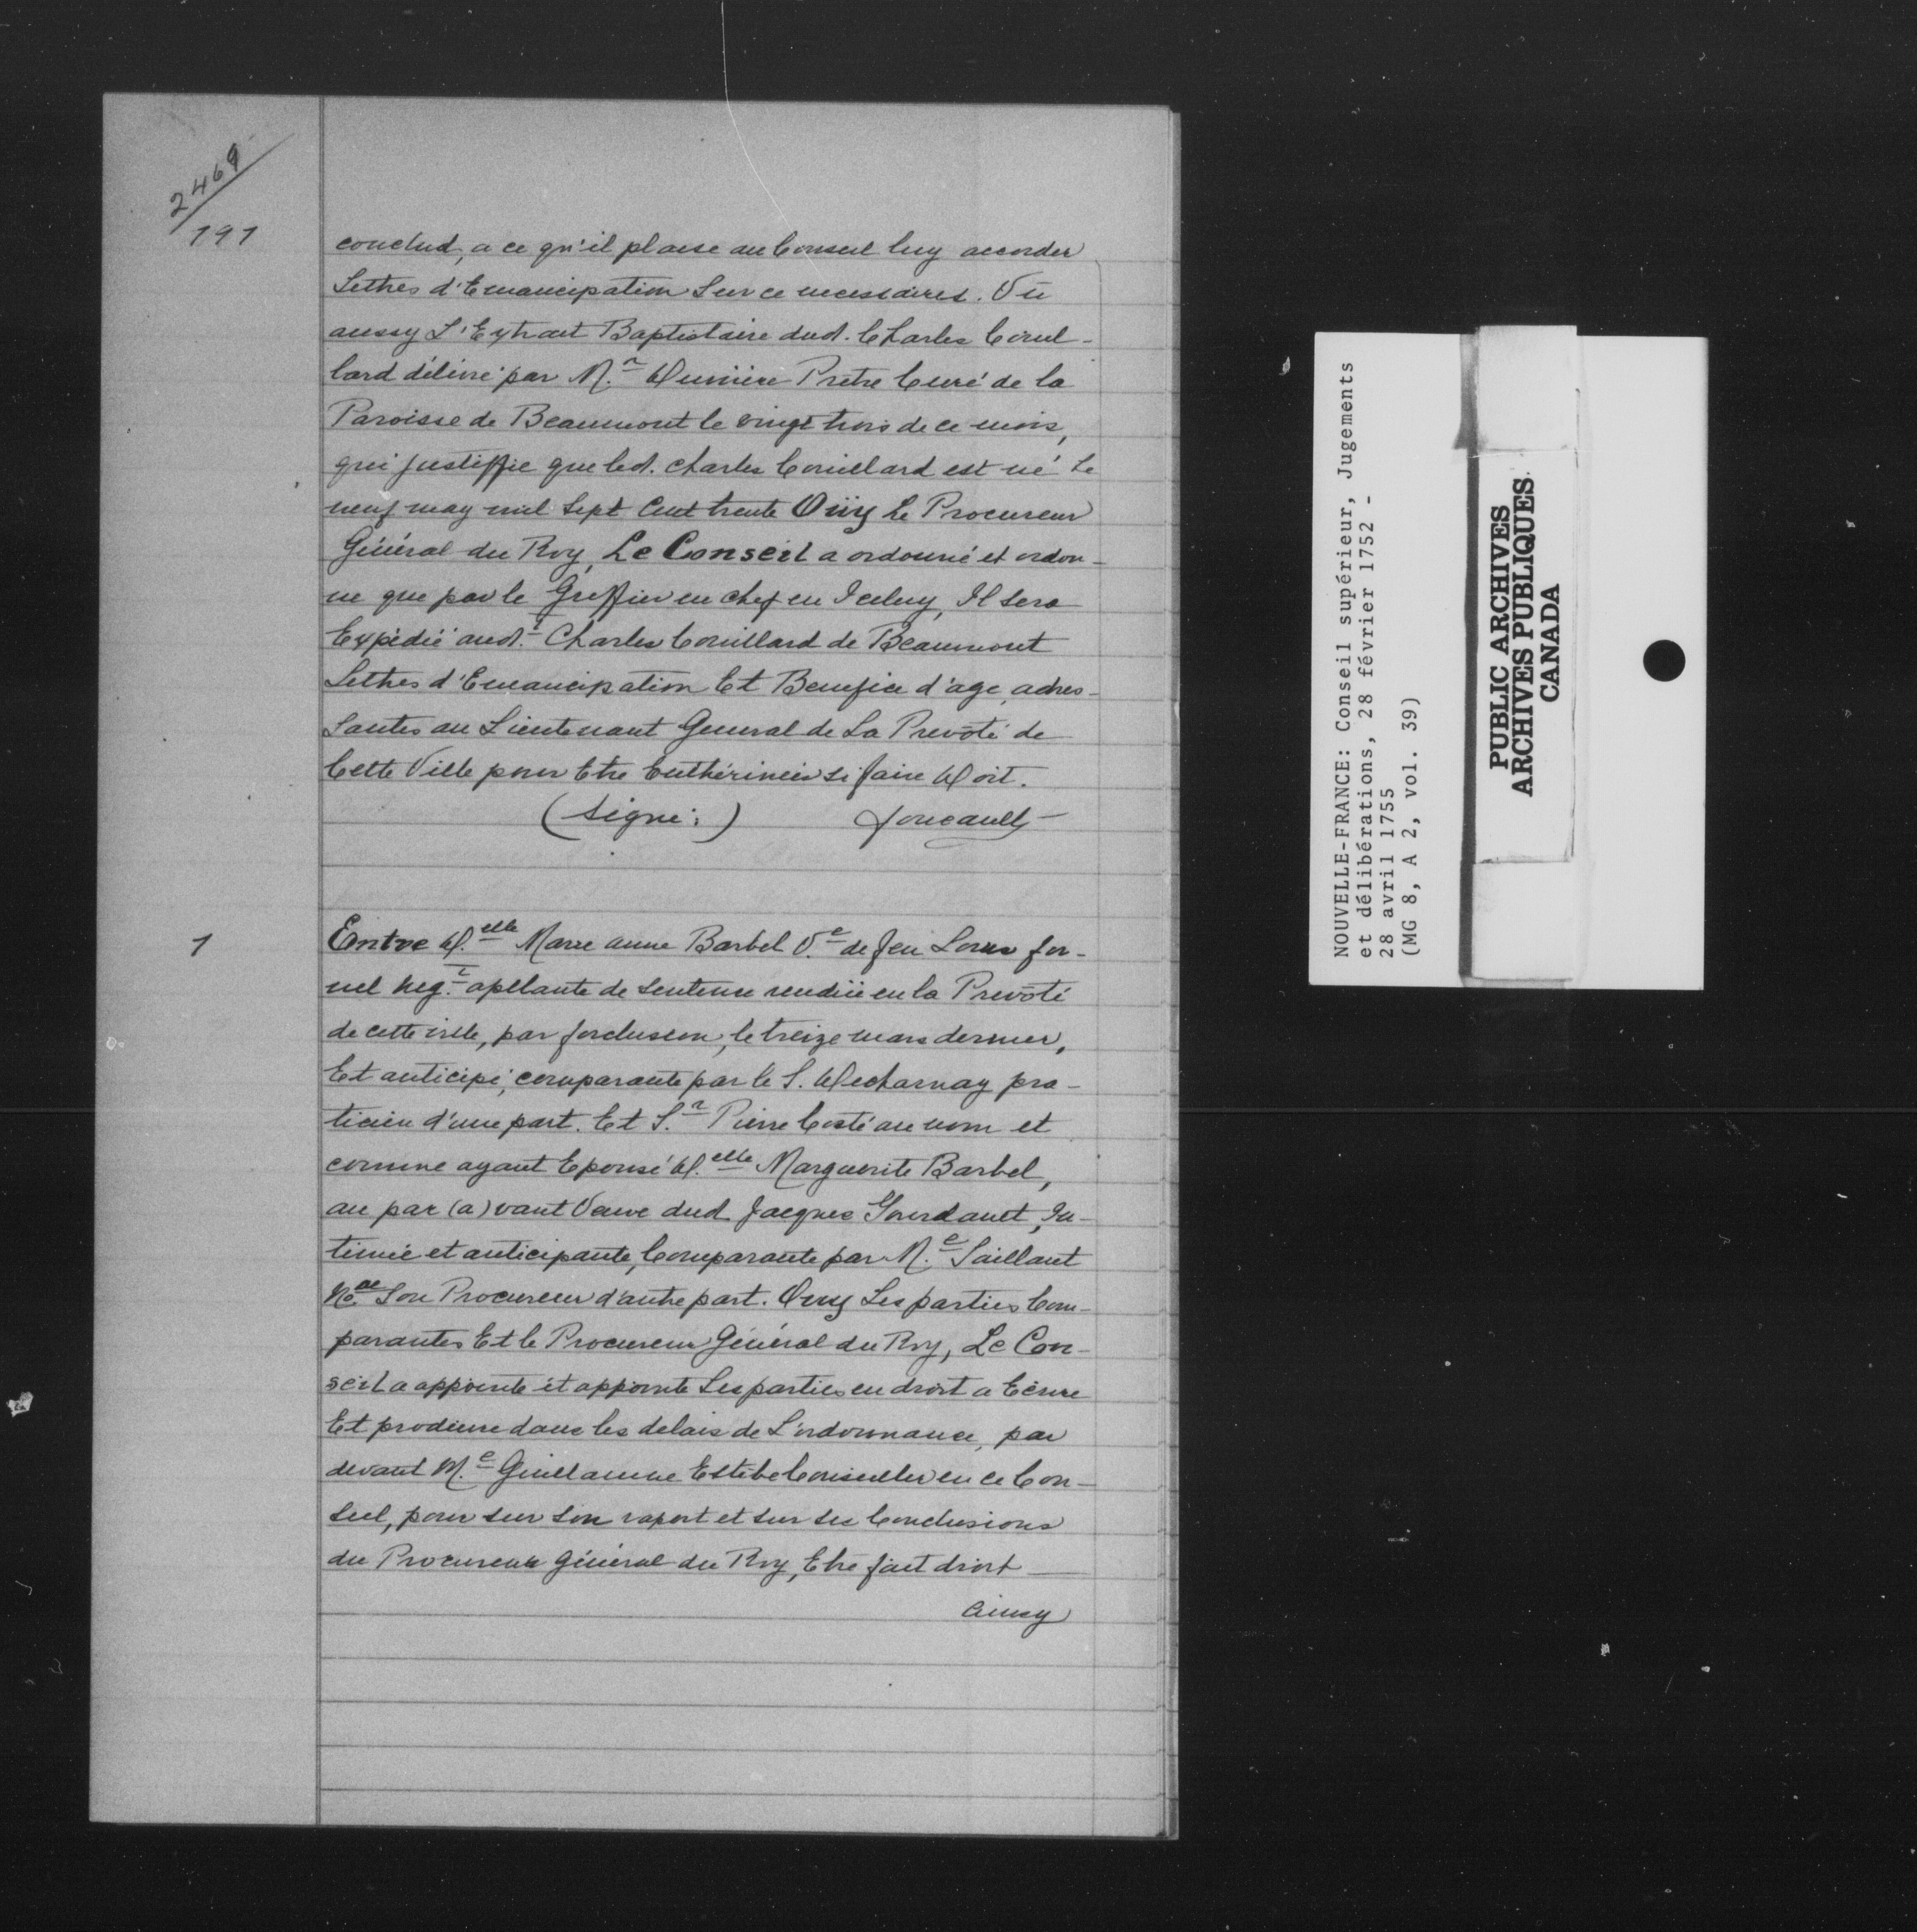 2469
191
conclud, a ce qu'il plaise au Conseil luy accorder
Lettres d'Emancipation Sur ce necessaires. Vû
aussy L'Extrait Baptistaire dud. Charles Couil-
lard délivré par M.r Dunière Prêtre Curé de la
Paroisse de Beaumont le vingt trois de ce mois,
qui justiffie que led. Charles Couillard est né Le
neuf may mil Sept Cent trente Oüy Le Procureur
Général du Roy, Le Conseil a ordonné et ordon-
ne que par le Greffier en chef en Iceluy, Il sera
Expédié aud.t Charles Couillard de Beaumont
Lettres d'Emancipation Et Benefice d'age, adres-
Santes au Lieutenant General de La Prevôté de
Cette Ville pour Etre Enthérinées si faire Doit.
(Signé:) Foucault
1
Entre D.elle Marie anne Barbel V.e de feu Louis for-
nel neg.t apellante de Sentence rendüe en la Prevôté
de cette ville, par forclusion, le treize mars dernier,
Et anticipé, comparante par le S. Decharnay pra-
ticien d'une part. Et S.r Pierre Costé au nom et
comme ayant Epousé D.elle Marguerite Barbel,
au par (a)vant Veuve dud Jacques Gourdault, In-
timée et anticipante, Comparante par M.e Saillant
No.re Son Procureur d'autre part. Ouy Les parties Com-
parantes Et le Procureur Général du Roy, Le Con-
seil a appointé et appointe Les parties en droit a Ecrire
Et produire dans les delais de L'ordonnance, par
devant M.e Guillaume Estèbe Conseiller en ce Con-
seil, pour sur son raport et sur les Conclusions
du Procureur Général du Roy, Etre fait droit
Ainsy
NOUVELLE-FRANCE: Conseil supérieur, Jugements
et délibérations, 28 février 1752 -
28 avril 1755
(MG 8, A 2, vol. 39)
PUBLIC ARCHIVES
ARCHIVES PUBLIQUES
CANADA